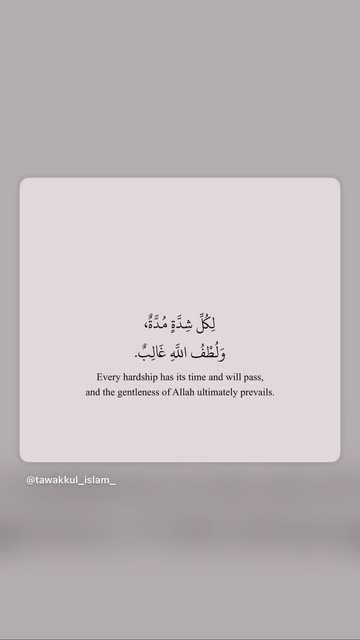 لِكُلِّ شِدَّةٍ مُدَّةٌ،
وَلُطْفُ اللَّهِ غَالِبٌ.
Every hardship has its time and will pass,
and the gentleness of Allah ultimately prevails.
@tawakkul_islam_